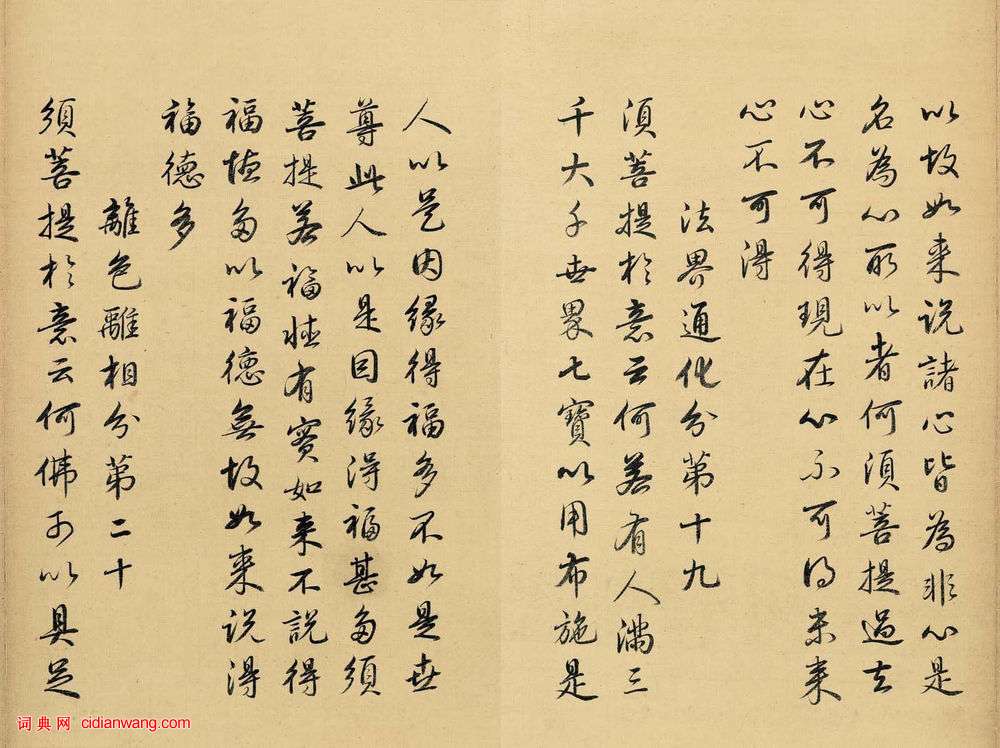 以故如来説諸心皆為非心是
名為心所以者何須菩提過去
心不可得現在心不可得未来
心不可得
法界通化分第十九
須菩提於意云何若有人滿三
千大千世界七寶以用布施是
人以是因緣得福多不如是世
尊此人以是因緣得福甚多須
菩提若福德有實如来不說得
福德多以福德無故如来説得
福德多
離色離相分第二十
須菩提於意云何佛可以具足
词典网 cidianwang.com